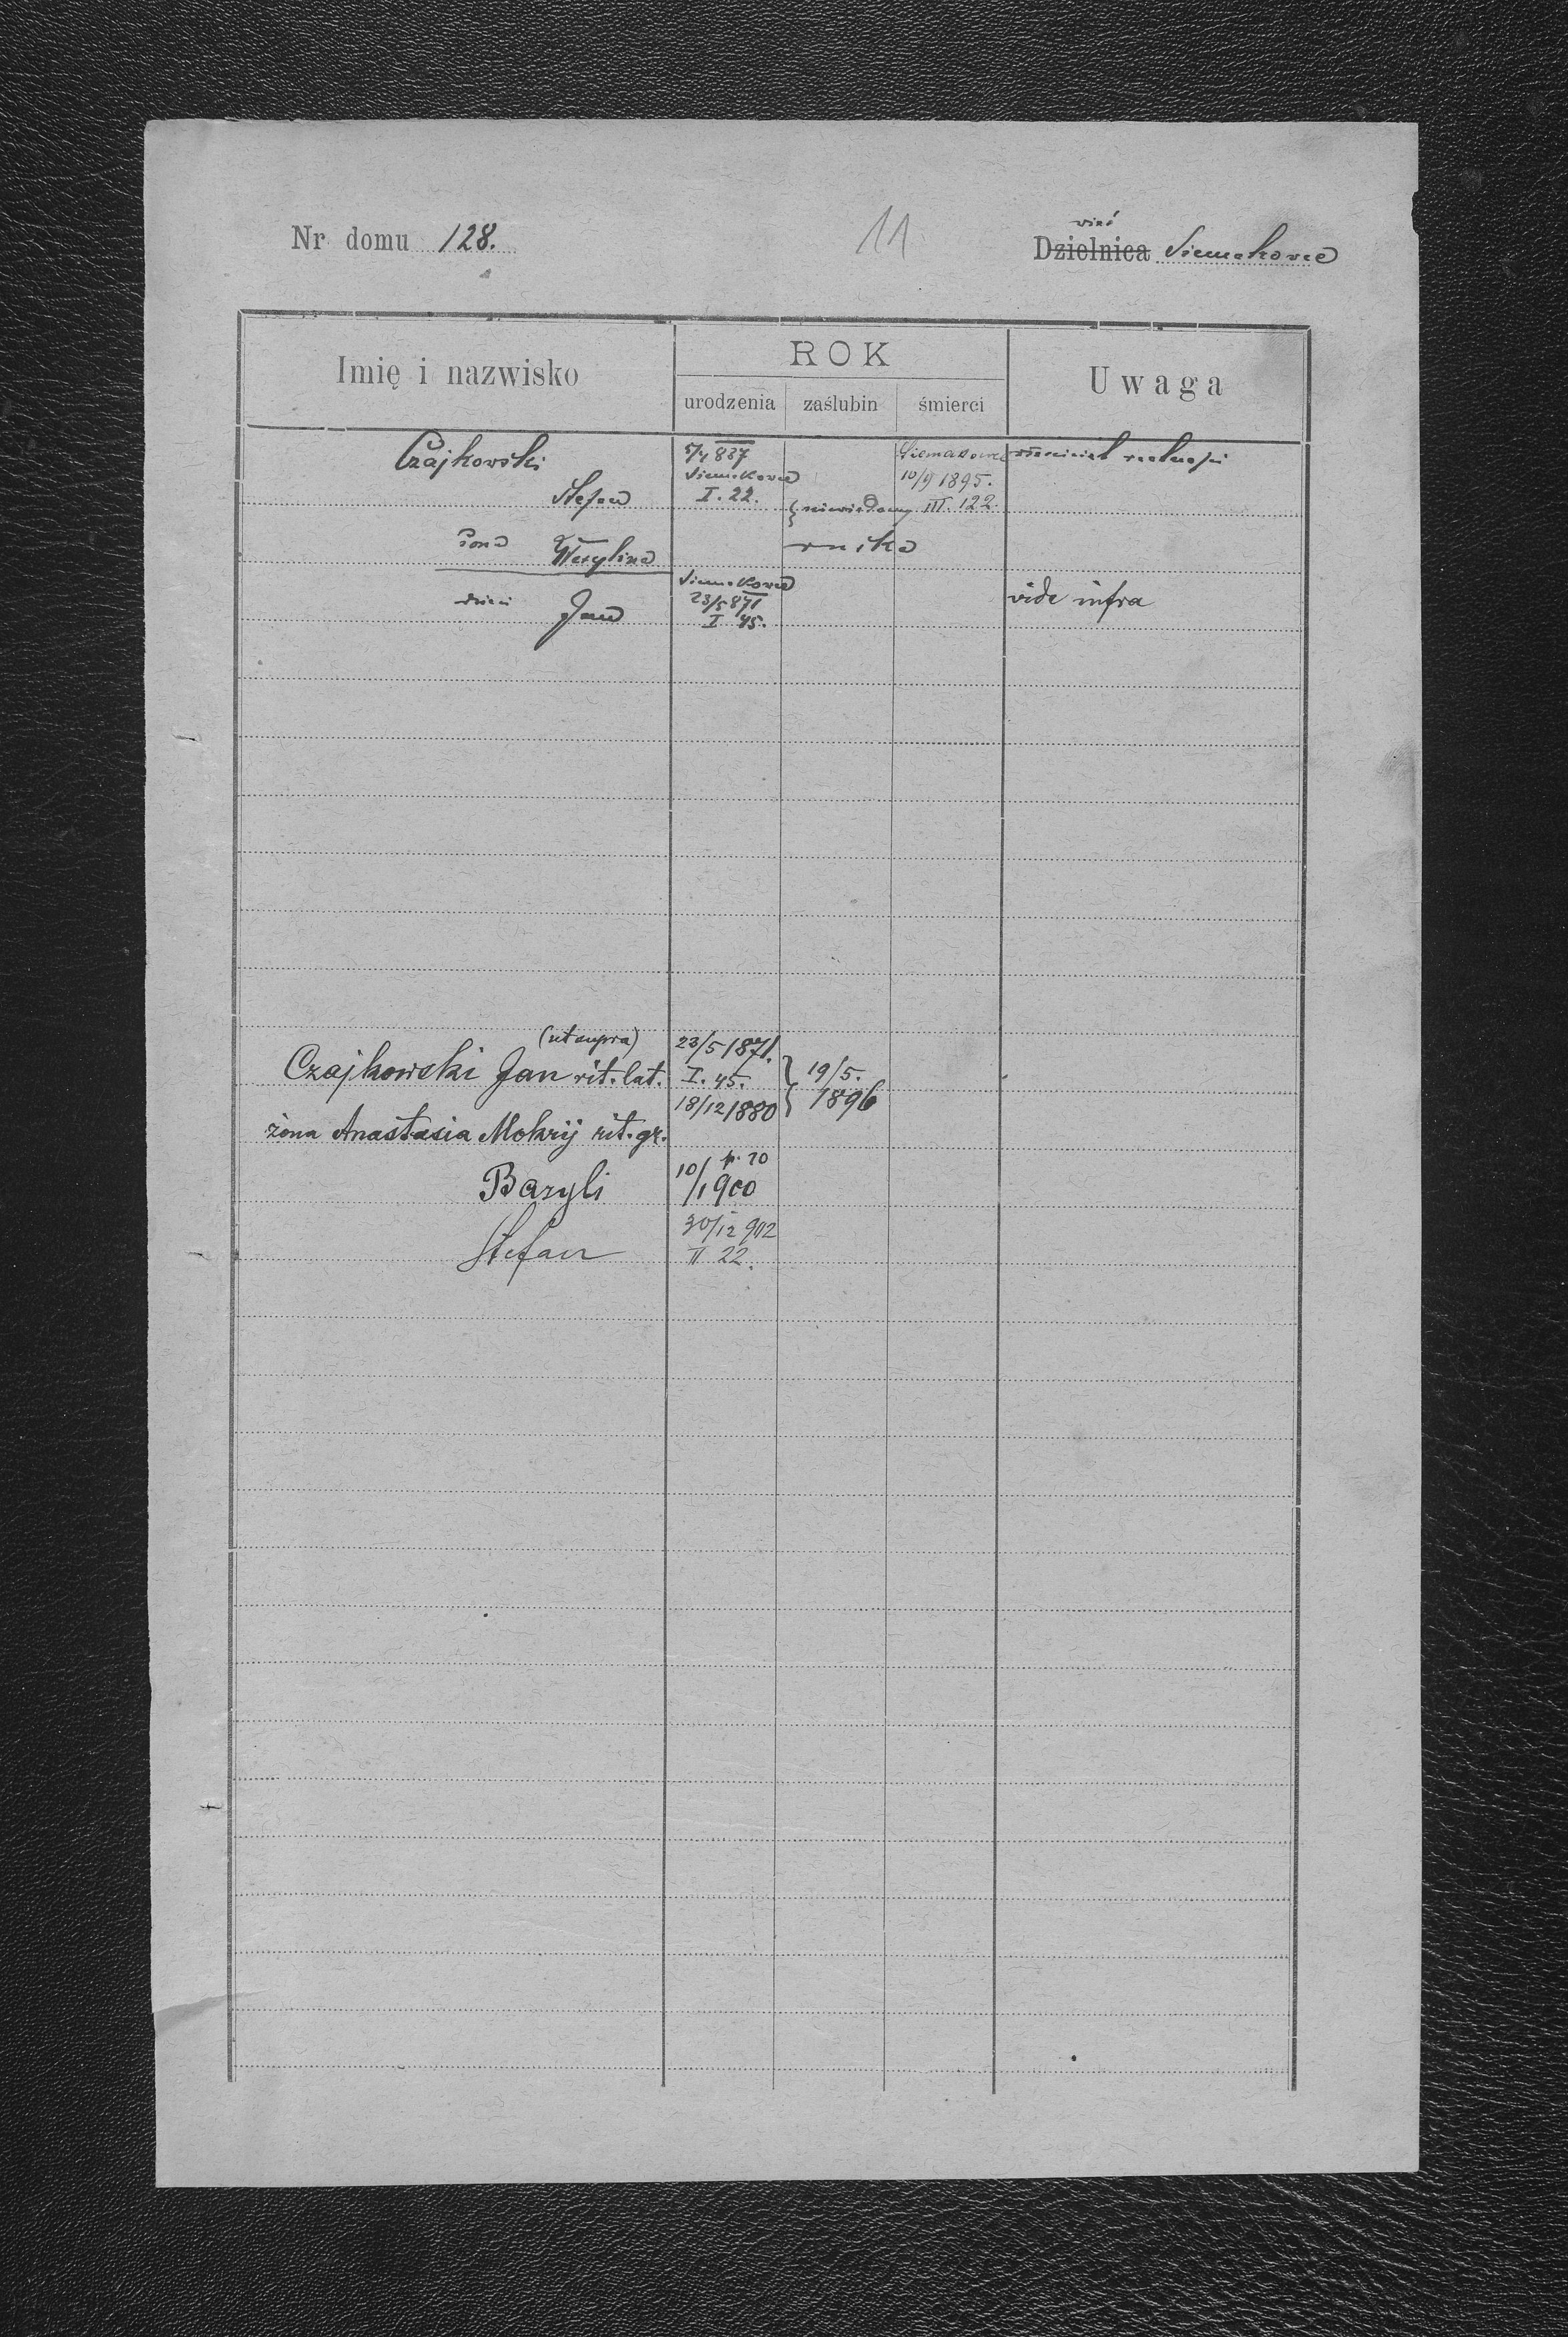 Nr domu 128.
11
wieś
Dzielnica Siemakowce
Imię i nazwisko
ROK
urodzenia zaślubin śmierci
Uwaga
Czajkowski
Stefan
5/4 837
Siemakowce
I. 22.
Siemakowce
10/9 1895.
III. 122
właściciel realności
żona Wasylina
niewiadomy
dzieci Jan
Siemakowce
23/5 871
I 45.
vide infra
(ut supra)
Czajkowski Jan rit. lat.
23/5 1871.
I. 45.
19/5.
1896
żona Anastasia Mokrij rit. gr.
18/12 1880
Bazyli
10/1 p. 20
1900
Stefan
30/12 902
II 22.